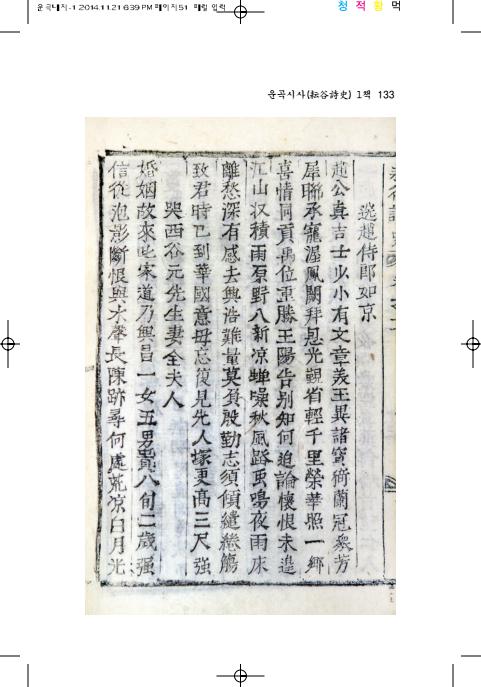 운곡내지-1 2014.11.21 6:39 PM 페이지51
청 적 황 먹
운곡시사(耘谷詩史) 1책 133
送趙侍郎如京
趙公真吉士少小有文章義王異諸寶猗蘭冠衆芳
犀聯承寵渥鳳闕拜恩光覲省輕千里榮華照一鄉
喜情同貢禹位重勝王陽告別知何迫論懷恨未遑
江山収積雨原野入新凉蟬噪秋風路虫鳴夜雨床
離愁深有感去興浩難量莫負殷勤志須傾繾綣觴
致君時已到華國意毋忘復見先人塚更高三尺强
哭西谷元先生妻全夫人
婚姻故來此家道乃興昌一女五男貴八旬二歲强
信從泡影斷恨與水聲長陳跡尋何處荒凉白月光